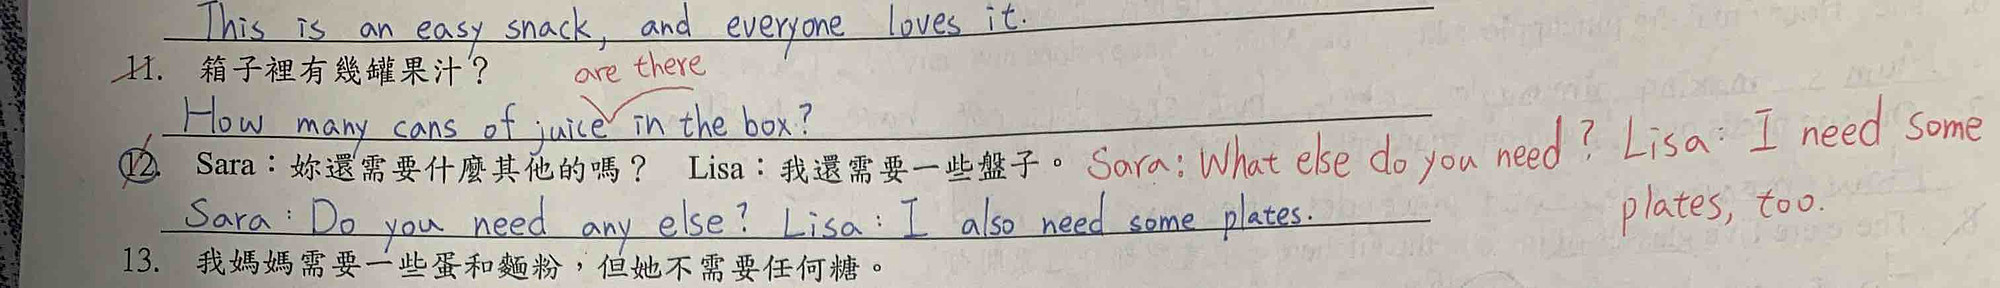 This is an easy snack, and everyone loves it.
11. 箱子裡有幾罐果汁？
are there
How many cans of juice in the box?
12. Sara：妳還需要什麼其他的嗎？ Lisa：我還需要一些盤子。 Sara: What else do you need? Lisa: I need some
plates, too.
Sara: Do you need any else? Lisa: I also need some plates.
13. 我媽媽需要一些蛋和麵粉，但她不需要任何糖。